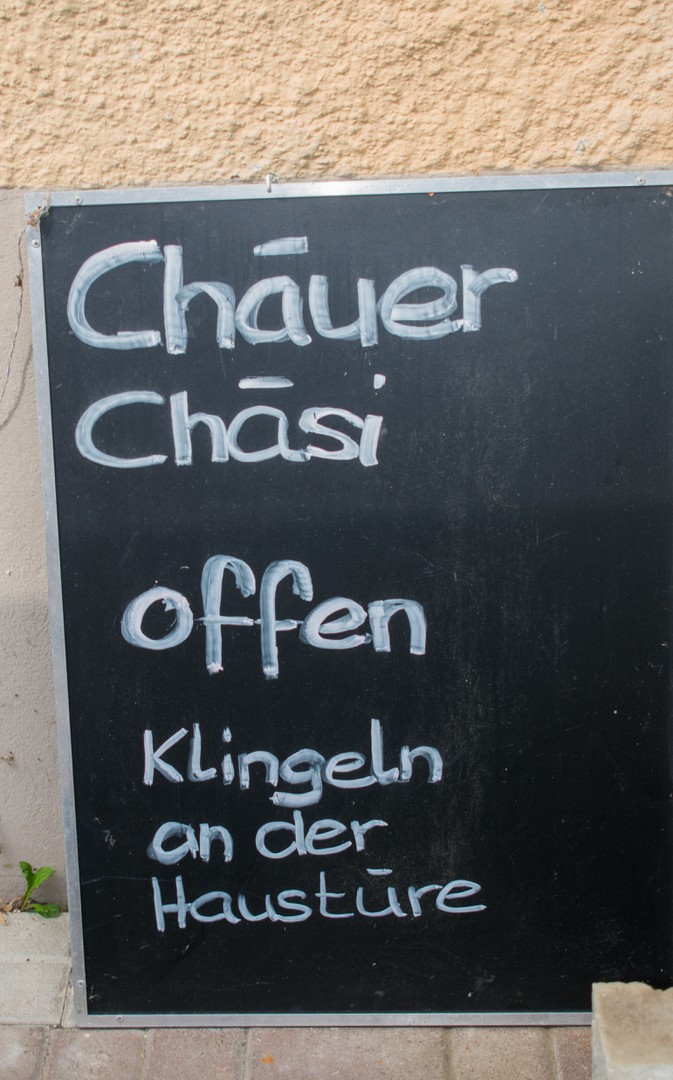 Chäuer
Chäsi
offen
Klingeln
an der
Haustüre